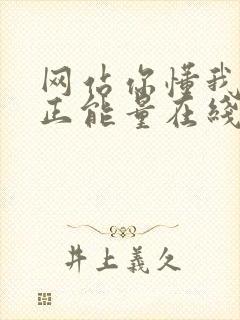 网站你懂我
正能量在线
井上義久